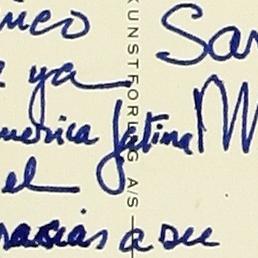 nico San
e ya
merica latina M
el
racias a su
KUNSTFORLAG A/S